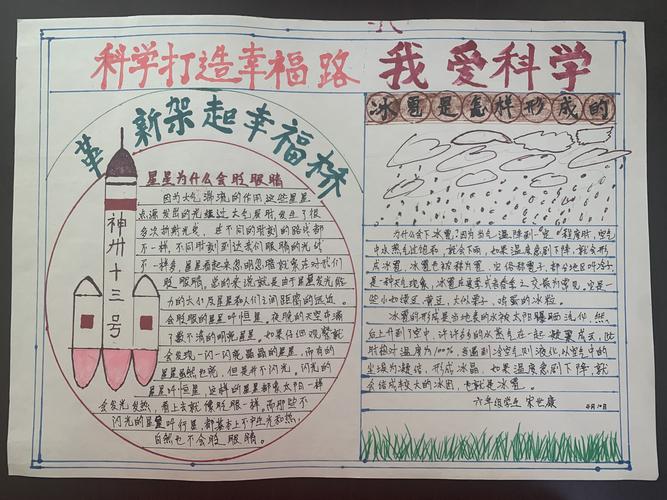 科学打造幸福路
我爱科学
革新架起幸福桥
神州十三号
星星为什么会眨眼睛
因为大气湍流的作用,这些星星
点源发出的光经过大气层时,发生了很
多次折射光线,在不同的时刻的路线都
不一样,不同时刻到达我们眼睛的光线
不一样多,星星看起来忽明忽暗就象在对我们
眨眼睛,总的来说就是由于星星发光能
力的大小及星星和人们之间距离的远近。
会眨眼的星星叫恒星,夜晚的天空中满
了数不清的明亮星星。如果仔细观察就
会发现一闪一闪亮晶晶的星星,而有的
星星虽然也亮,但是并不闪光。闪光的
星星叫恒星,这样的星星都象太阳一样
会发光发热,看上去就像眨眼一样。而那些不
闪光的星星叫行星,都基本上不产生光和热,
自然也不会眨眼睛。
冰雹是怎样形成的
为什么会下冰雹?因为当气温降到一定程度时,空气
中水蒸气过饱和,就会下雨,如果温度急剧下降,就会形
成冰雹,冰雹也被称为雹,
是一种天气现象,冰雹在夏或春夏之交最为常见,它是一
些小如绿豆、黄豆,大似栗子、鸡蛋的冰粒。
冰雹的形成是当地表的水被太阳曝晒汽化,然
后上升到了空中,许许多多的水蒸气在一起凝聚成云,此
时相对湿度为100%,当遇到冷空气则液化,以空气中的
尘埃为凝结,形成冰晶,如果温度急剧下降,就
会结成较大的冰团,也就是冰雹。
六年级学生 宋世康 4月10日